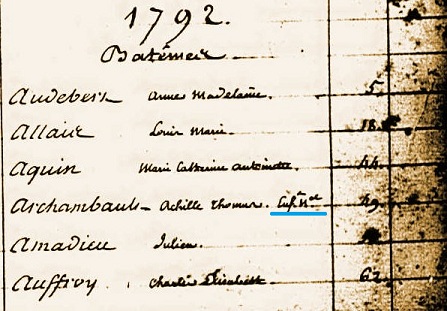 1792.
Batêmes
Audebert Anne Madelaine. 5.
Allaire Louis Marie. 18.
Aquin Marie Catherine Antoinette. 44.
Archambault Achille Thomas. Enf.t N.el 49
Amadieu Julien.
Auffroy Charles Elisabeth 62.